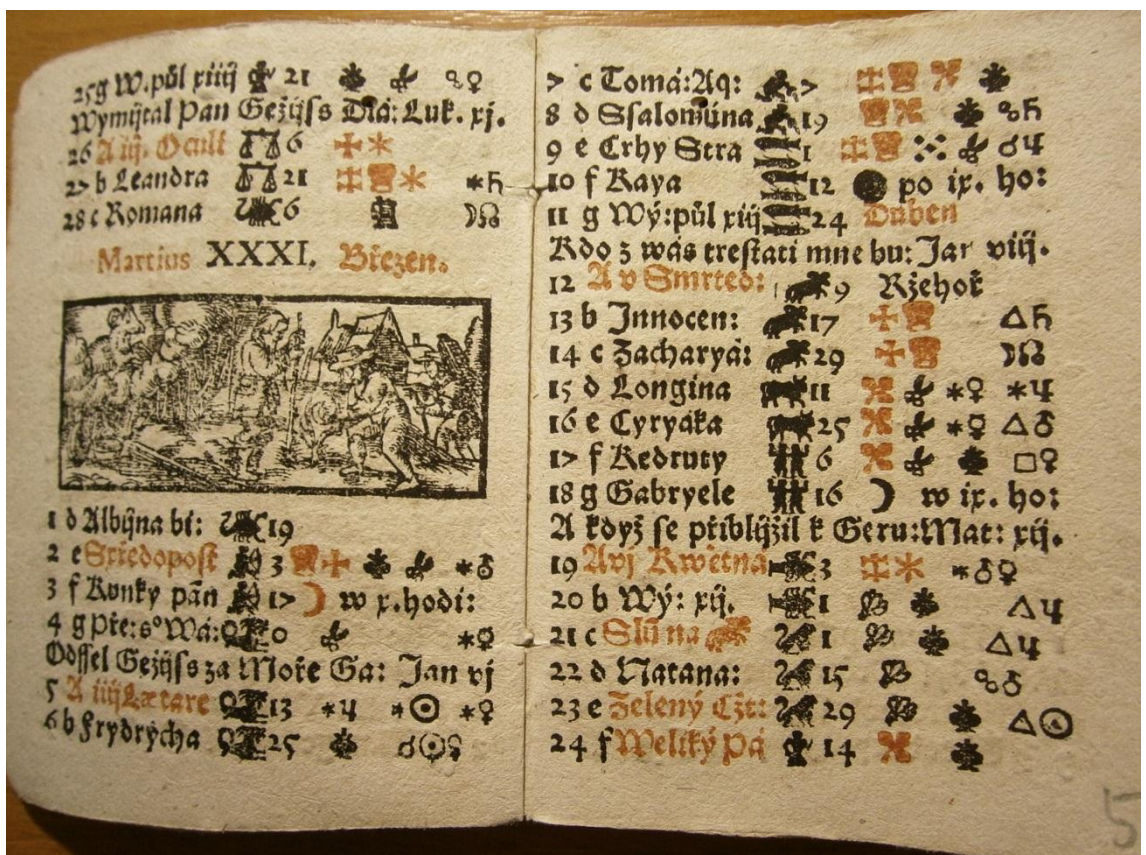 25 g W. půl xiiij 21 ☍♀
Wymijtal Pan Gežijſs Diá: Luk. xj.
26 A iij. Oculi 6
27 b Leandra 21 *♄
28 c Romana 6 ☽☊
Martius XXXI. Březen.
1 d Albijna bi: 19
2 e Střiedopoſt 3 *♂
3 f Kunky pán 17 ☽ w x. hodi:
4 g Pře: sᵒ Wá: 0 *♀
Odſſel Gežijſs za Moře Ga: Jan vj
5 A iiij Lætare 13 *♃ *☉ *♀
6 b Frydrycha 25 ☌☉
7 c Tomá: Aq: 7
8 d Sſalomúna 19 ☍♄
9 e Crhy Stra 1 ☌♃
10 f Kaya 12 po ix. ho:
11 g Wý: půl xiij 24 Duben
Kdo z wás treſtati mne bu: Jar viij.
12 A v Smrted: 9 Ržehoř
13 b Innocen: 17 △♄
14 c Zacharyá: 29 ☽☊
15 d Longina 11 *♀ *♃
16 e Cyryáka 25 *☿ △♂
17 f Kedruty 6 □♀
18 g Gabryele 16 ☽ w ix. ho:
A když ſe přiblijžil k Geru: Mat: xij.
19 A vj Kwětná 3 *♂♀
20 b Wý: xij. 1 △♃
21 c Slŭ na 1 △♃
22 d Natana: 15 ☍♂
23 e Zelený Cžt: 29 △☉
24 f Weliký Pá 14
5